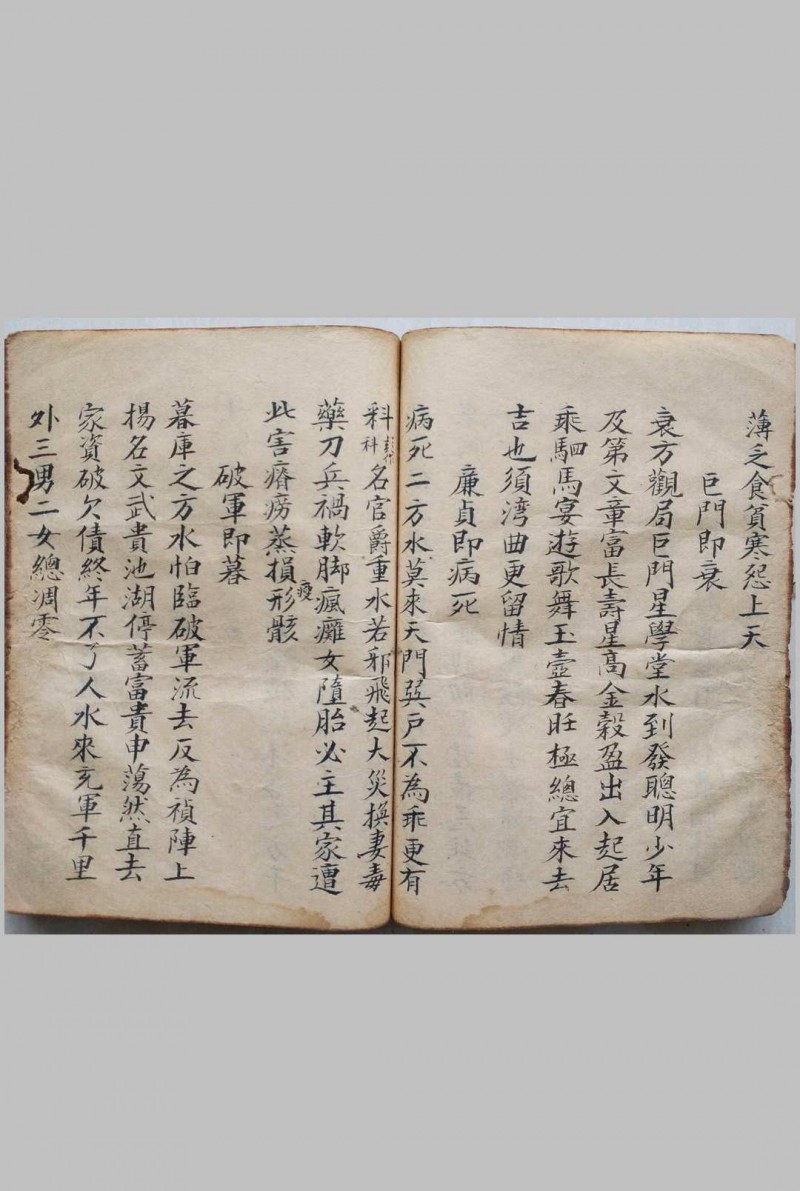 薄乏食貧寒怨上天
巨門即衰
衰方觀局巨門星學堂水到發聰明少年
及第文章富長壽星高金穀盈出入起居
乘駟馬宴遊歌舞玉壺春旺極總宜來去
吉也須湾曲更留情
廉貞即病死
病死二方水莫來天門巽戸不為乖更有
科科名官爵重水若邪飛起大災換妻毒
藥刀兵禍軟脚瘋癱女墮胎必主其家遭
此害瘠癆蒸損形骸
疫
破軍即墓
暮庫之方水怕臨破軍流去反為禎陣上
揚名文武貴池湖停蓄富貴申蕩然直去
家資破欠債終年不了人水來充軍千里
外三男二女總凋零